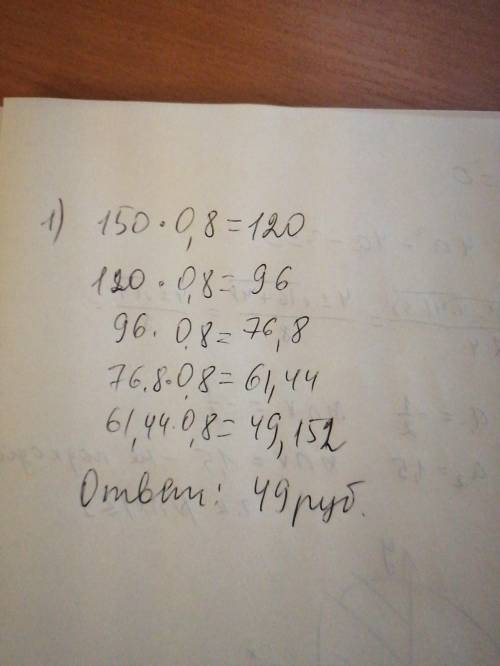 1) 150 · 0,8 = 120
120 · 0,8 = 96
96 · 0,8 = 76,8
76,8 · 0,8 = 61,44
61,44 · 0,8 = 49,152
Ответ: 49 руб.